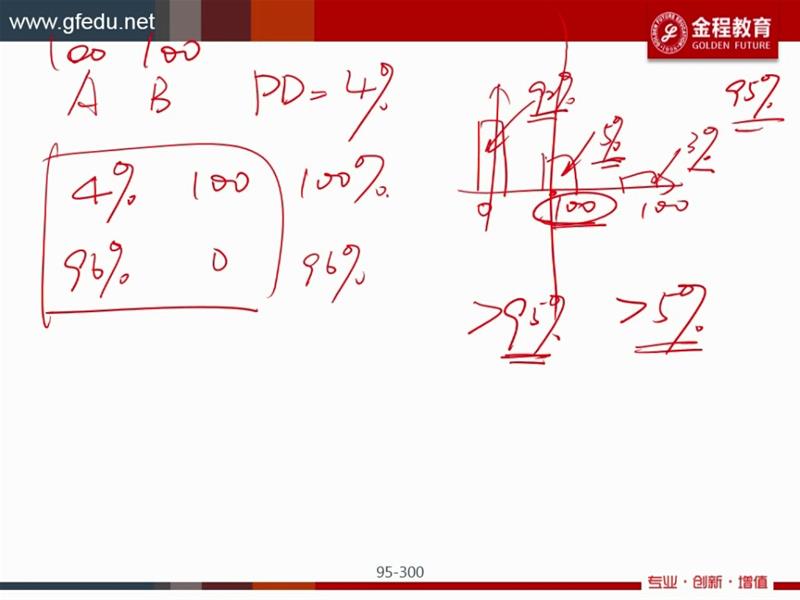 www.gfedu.net
金程教育
GOLDEN FUTURE
100 100
A B PD=4%
4% 100 100%
96% 0 96%
92% 95%
5% 3%
0 100 100
>95% >5%
95-300
专业·创新·增值